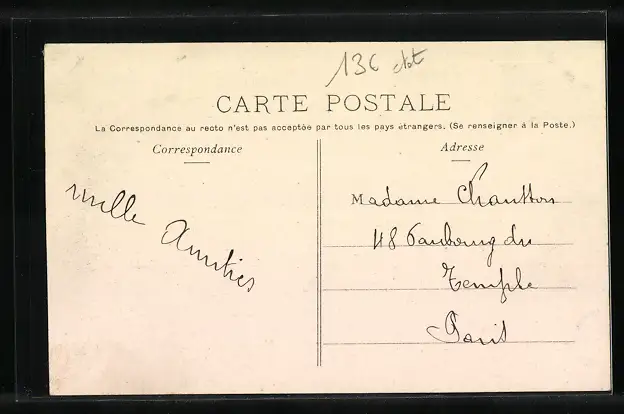 136
CARTE POSTALE
La Correspondance au recto n'est pas acceptée par tous les pays étrangers. (Se renseigner à la Poste.)
Correspondance
Adresse
mille
Amitiés
Madame
48 Faubourg du
Temple
Paris